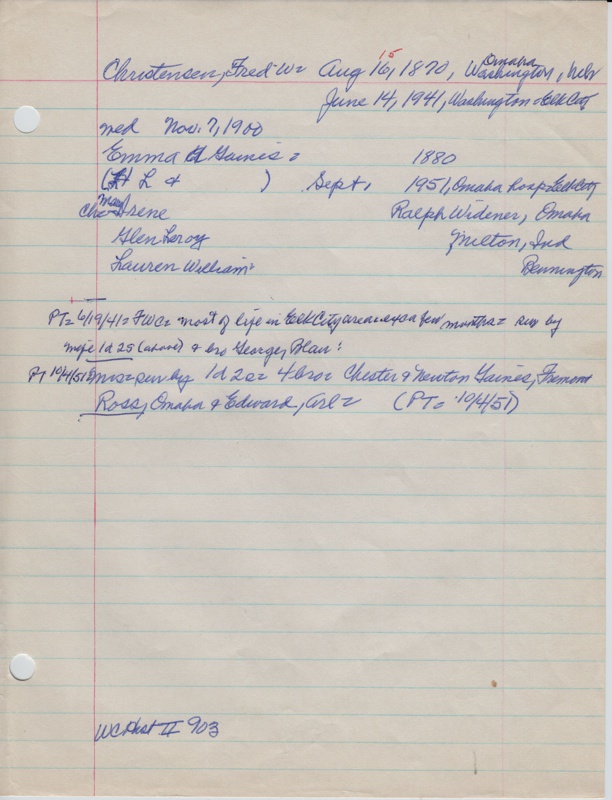 Christensen, Fred W= Aug 16, 1870, Washington, Nebr
15 Omaha
June 14, 1941, Washington - Elk City
med Nov. 7, 1900
Emma Gaines = 1880
( L & ) Sept, 1951, Omaha hosp Elk City
Chr= Mae Irene Ralph Widener, Omaha
Glen Leroy Milton, Ind
Lauren William= Bennington
PT= 6/19/41= FWC= most of life in Elk City area exc a few months= sur by
wife 1d 2s (above) & bro George, Blair=
PT 10/4/51= sur by 1d 2s= 4 bro= Chester & Newton Gaines, Fremont
Ross, Omaha & Edward, Arl= (PT= 10/4/51)
WC Hist II 903